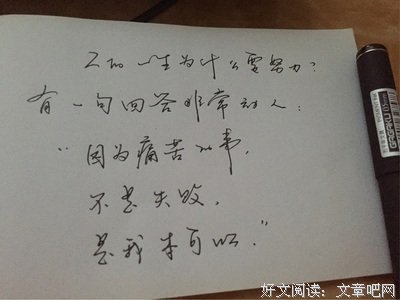 人的一生为什么要努力?
有一句回答非常动人:
“因为痛苦的事,
不是失败,
是我本可以."
好文阅读:文章吧网